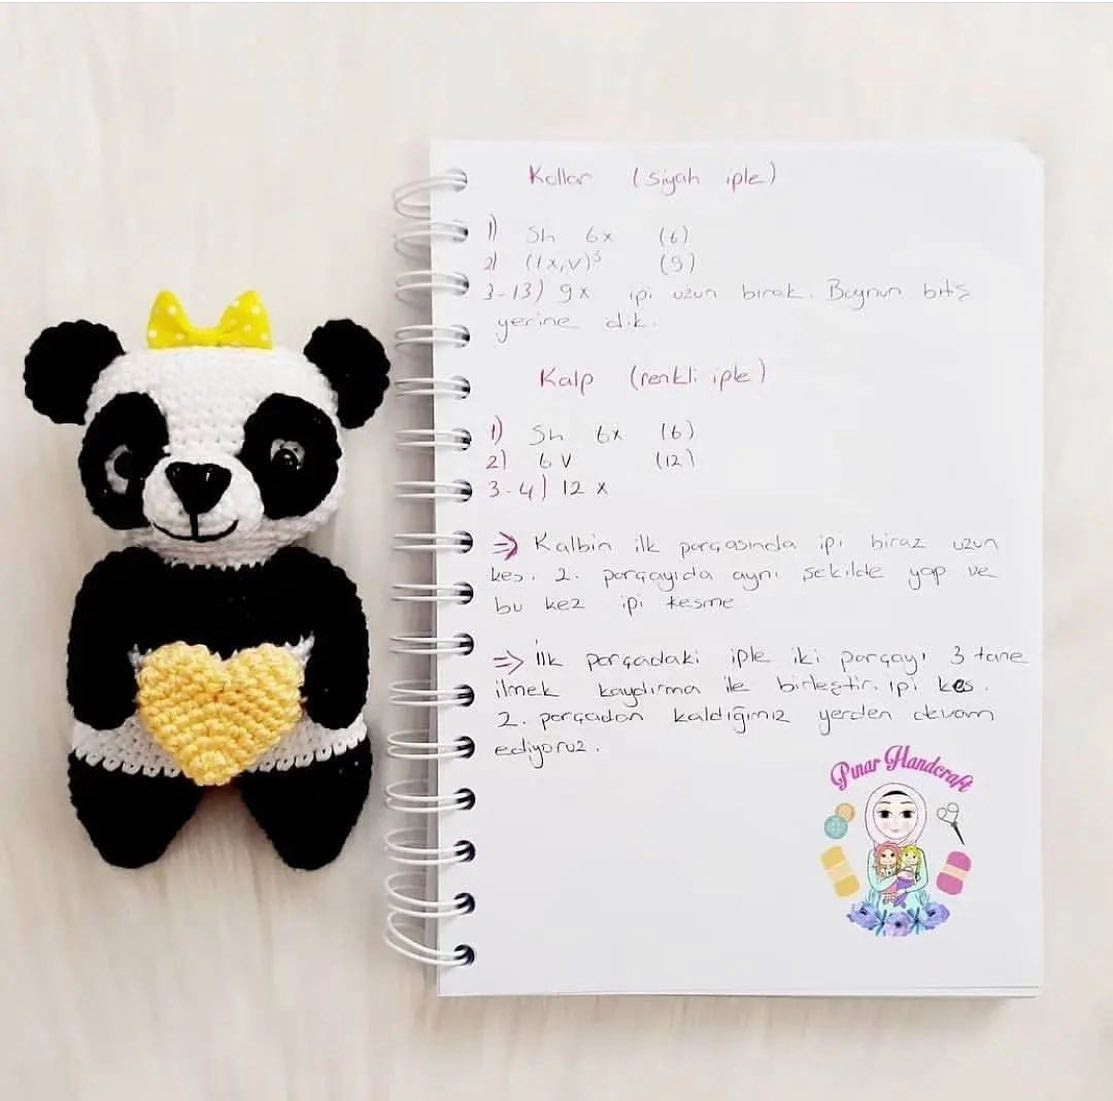 Kollar (siyah iple)
1) Sh 6x (6)
2) (1x,V)³ (9)
3-13) 9x ipi uzun bırak. Boynun bitiş
yerine dik.
Kalp (renkli iple)
1) Sh 6x (6)
2) 6V (12)
3-4) 12 x
⇒ Kalbin ilk parçasında ipi biraz uzun
kes. 2. parçayıda aynı şekilde yap ve
bu kez ipi kesme
⇒ İlk parçadaki iple iki parçayı 3 tane
ilmek kaydırma ile birleştir. ipi kes.
2. parçadan kaldığımız yerden devam
ediyoruz.
Pınar Handcraft